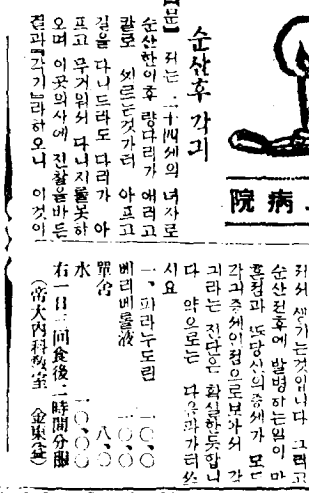 病院
순산후 각긔
【문】 저는 二十四세의 녀자로
순산한이후 량다리가 애리고
칼로 찌르는것가티 아프고
길을 다니드라도 다리가 아
프고 무거워서 다니지를못하
오며 이곳의사에 진찰을바든
결과『각기』라하오니 이것이
저서 생기는것입니다 그리고
순산전후에 발병하는일이 마
흔점과 또당신의증세가 모도
각긔증세인점으로보아서 각
긔라는 진단은 확실한듯합니
다 약으로는 다음과가티 쓰
시요
一、피라누도린 一〇、〇
베리베롤液 一〇、〇
單舍 八、〇
水 一〇〇、〇
右一日三回食後二時間分服
(帝大內科敎室 金東益)